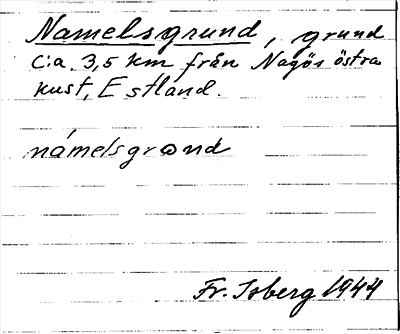 Namelsgrund, grund
c:a. 3,5 km från Nagös östra
kust, Estland.
námelsgrωnd
Fr. Isberg 1944